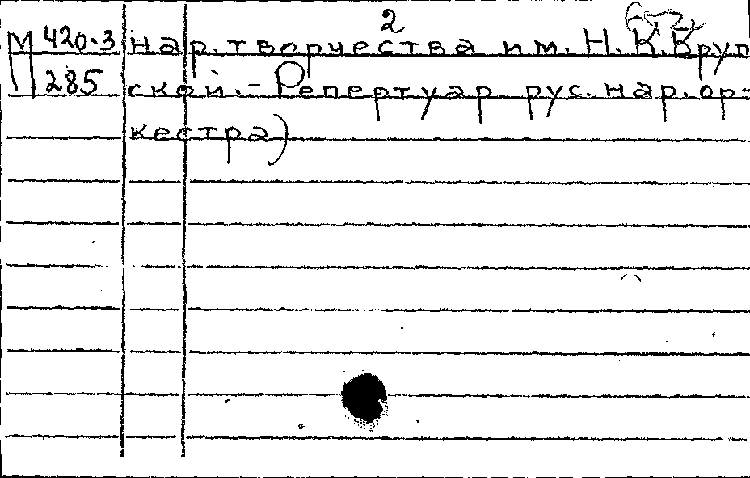 2
М 420.3 нар. творчества им. Н. К. Круп
285 ской. – Репертуар рус. нар. ор-
кестра)